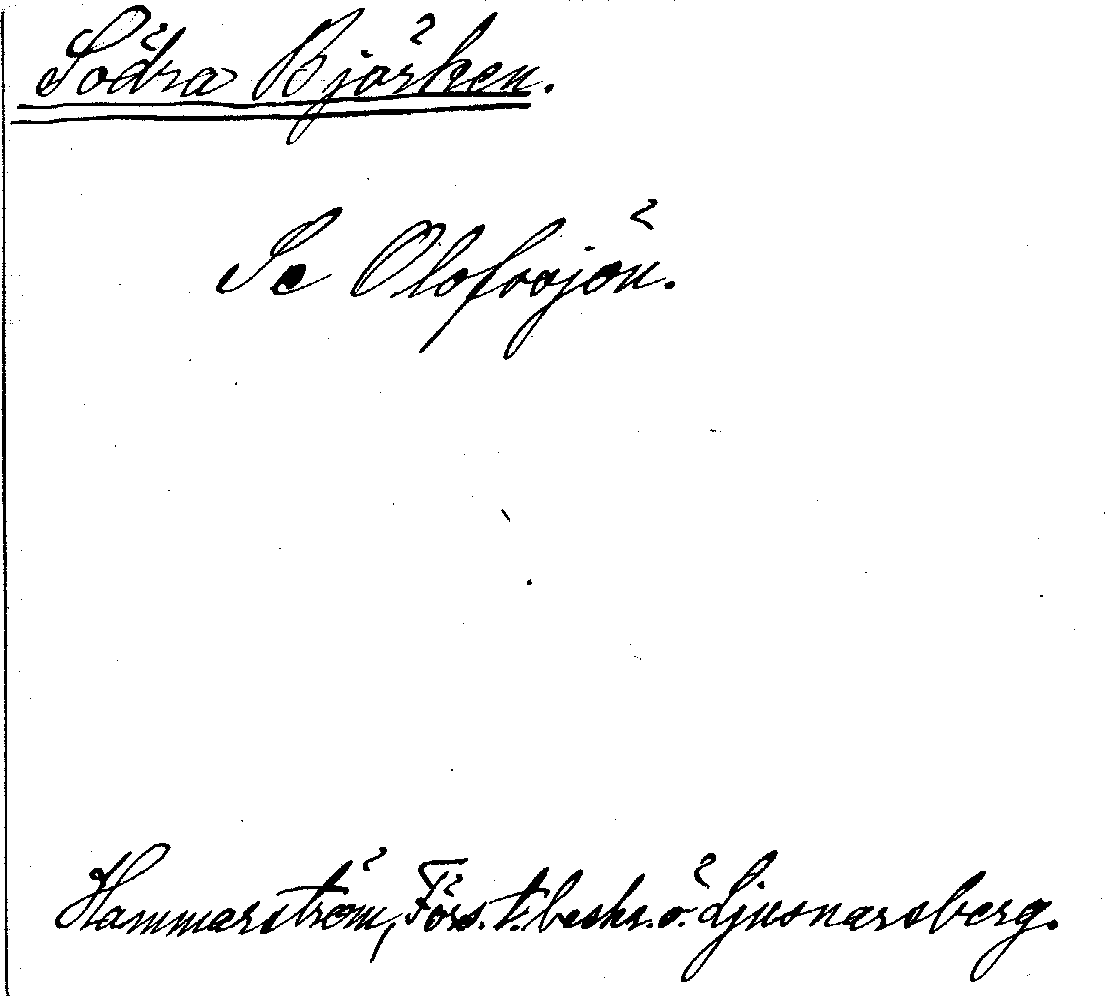 Södra Björken.
Se Olofssjön.
Hammarström, Förs. t. beskr. ö. Ljusnarsberg.